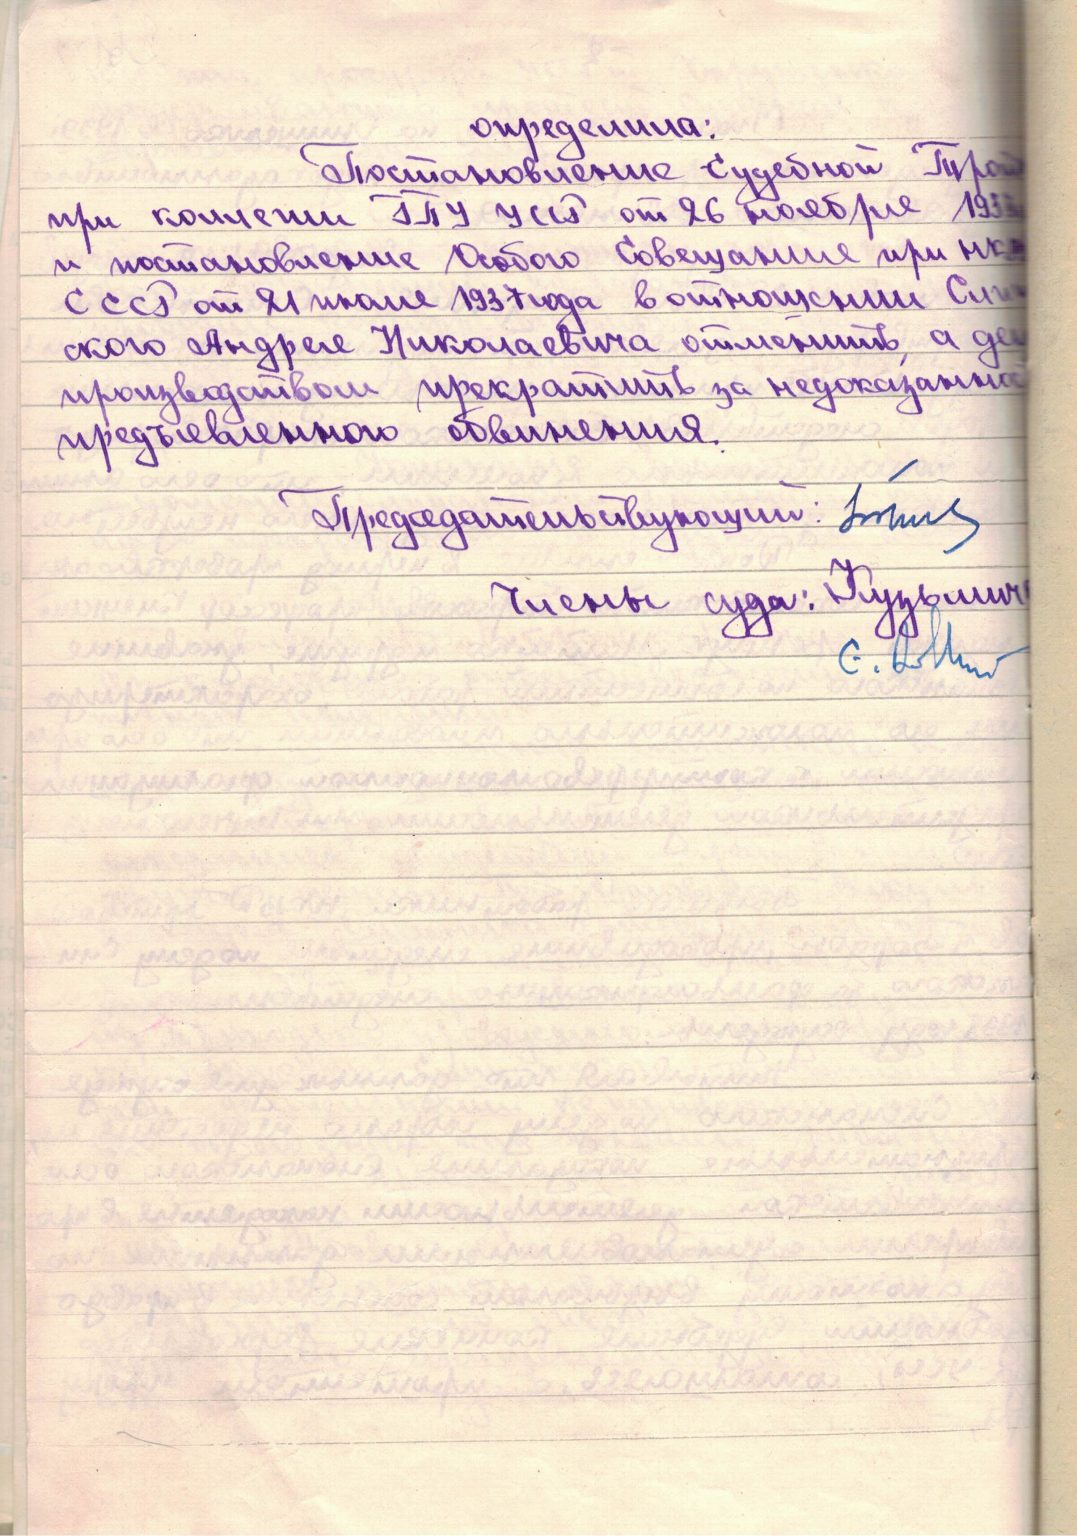 определила:
Постановление Судебной Трой
при коллегии ГПУ УССР от 26 ноября 193
и постановление Особого Совещания при НК
СССР от 21 июля 1937 года в отношении
ского Андрея Николаевича отменить, а де
производством прекратить за недоказаннос
предъявленного обвинения.
Председательствующий:
Члены суда: Кузьмич
С.